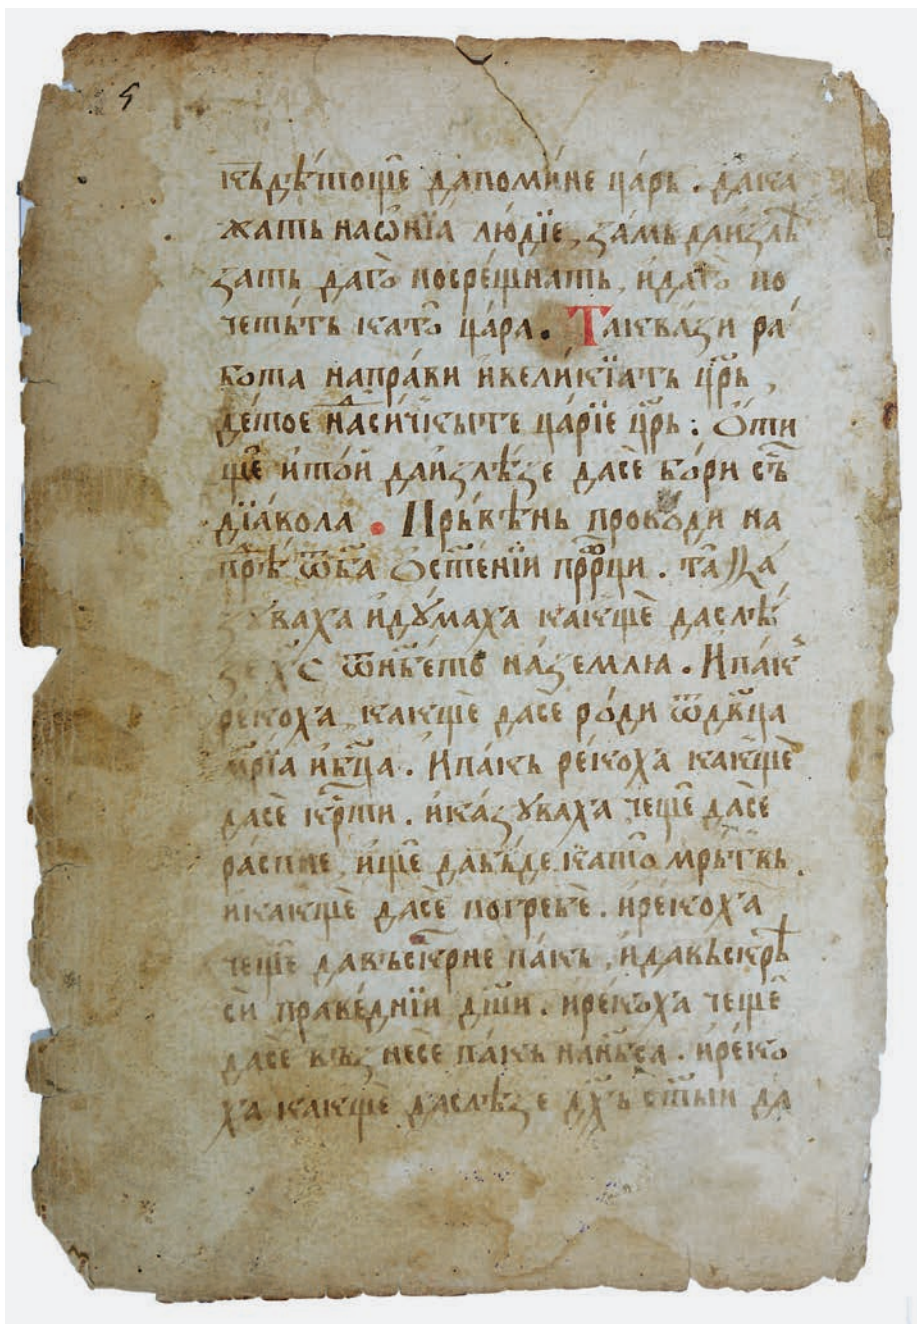 5
къдѣ́тоще дапоми́не ца́рь . да́ка
жать насѡ́нїа лю́дїе, за́мь даизлѣ
зать даго̀ посре́щнать, идаго̀ по
че́тьть като̀ ца́ра . Такъ́ази ра́
бота напра́ви ивели́кїать цр҃ь ,
де́тое на́си́чкыте ца́рїе цр҃ь : Ѻти
ще и́то́й даизлѣ́зе дасѐ бо́ри съ
дїа́вола . Прь́вѣнь прово́ди на
прѣ ѿба ѻсщ҃енїи прр҃ци . та
зуваха иду́маха какщѐ даслѣ́
зе х҃с ѿнб҃ето на́землю . Ипак
реко́ха какщѐ дасѐ ро́ди ѿдв҃ца
мр҃їа ив҃ца . Ипакь ре́коха какщѐ
дасѐ кр҃ти . ика́зуваха чещѐ да́се
распне, ищѐ дабъ́де като̀ мрь́твь .
икакщѐ дасѐ погребѐ . ире́коха
чещѐ давъскрне пакь , идавьскрѣ
си праве́днїи дш҃и . ире́коха чещѐ
дасѐ възнесѐ пакь нан҃беса . ире́ко
ха какщѐ даслѣ́зе дх҃ь ст҃ыи да